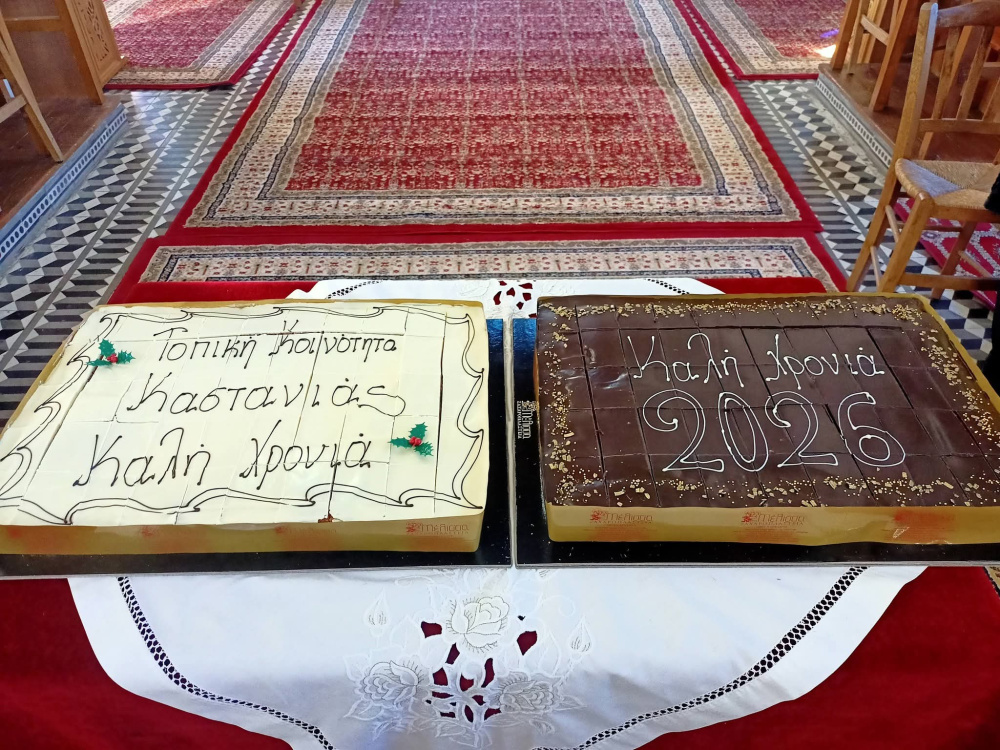 Τοπική Κοινότητα
Καστανιάς
Καλή Χρονιά
Καλή Χρονιά
2026